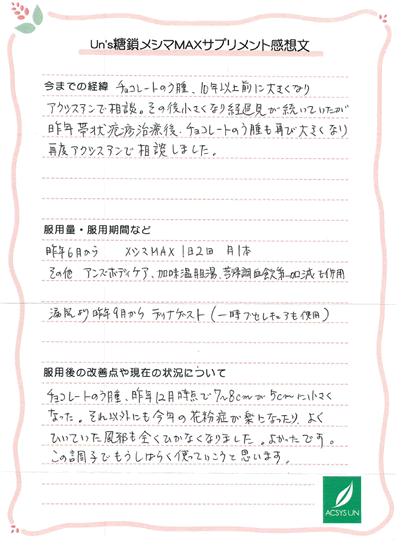 Un's糖鎖メシマMAXサプリメント感想文
今までの経緯 チョコレートのう腫、10年以上前に大きくなり
アクシスアンで相談。その後小さくなり経過見が続いていたが
昨年帯状疱疹治療後、チョコレートのう腫も再び大きくなり
再度アクシスアンで相談しました。
服用量・服用期間など
昨年6月から メシマMAX 1日2回 月1本
その他 アンズボディケア、加味温胆湯、芎帰調血飲第一加減も併用
昨年9月から ディナゲスト(一時プセレキュアも使用)
服用後の改善点や現在の状況について
チョコレートのう腫、昨年12月時点で7~8cmが5cmに小さく
なった。それ以外にも今年の花粉症が楽になったり、よく
ひいていた風邪も全くひかなくなりました。よかったです。
この調子でもうしばらく使っていこうと思います。
ACSYS UN